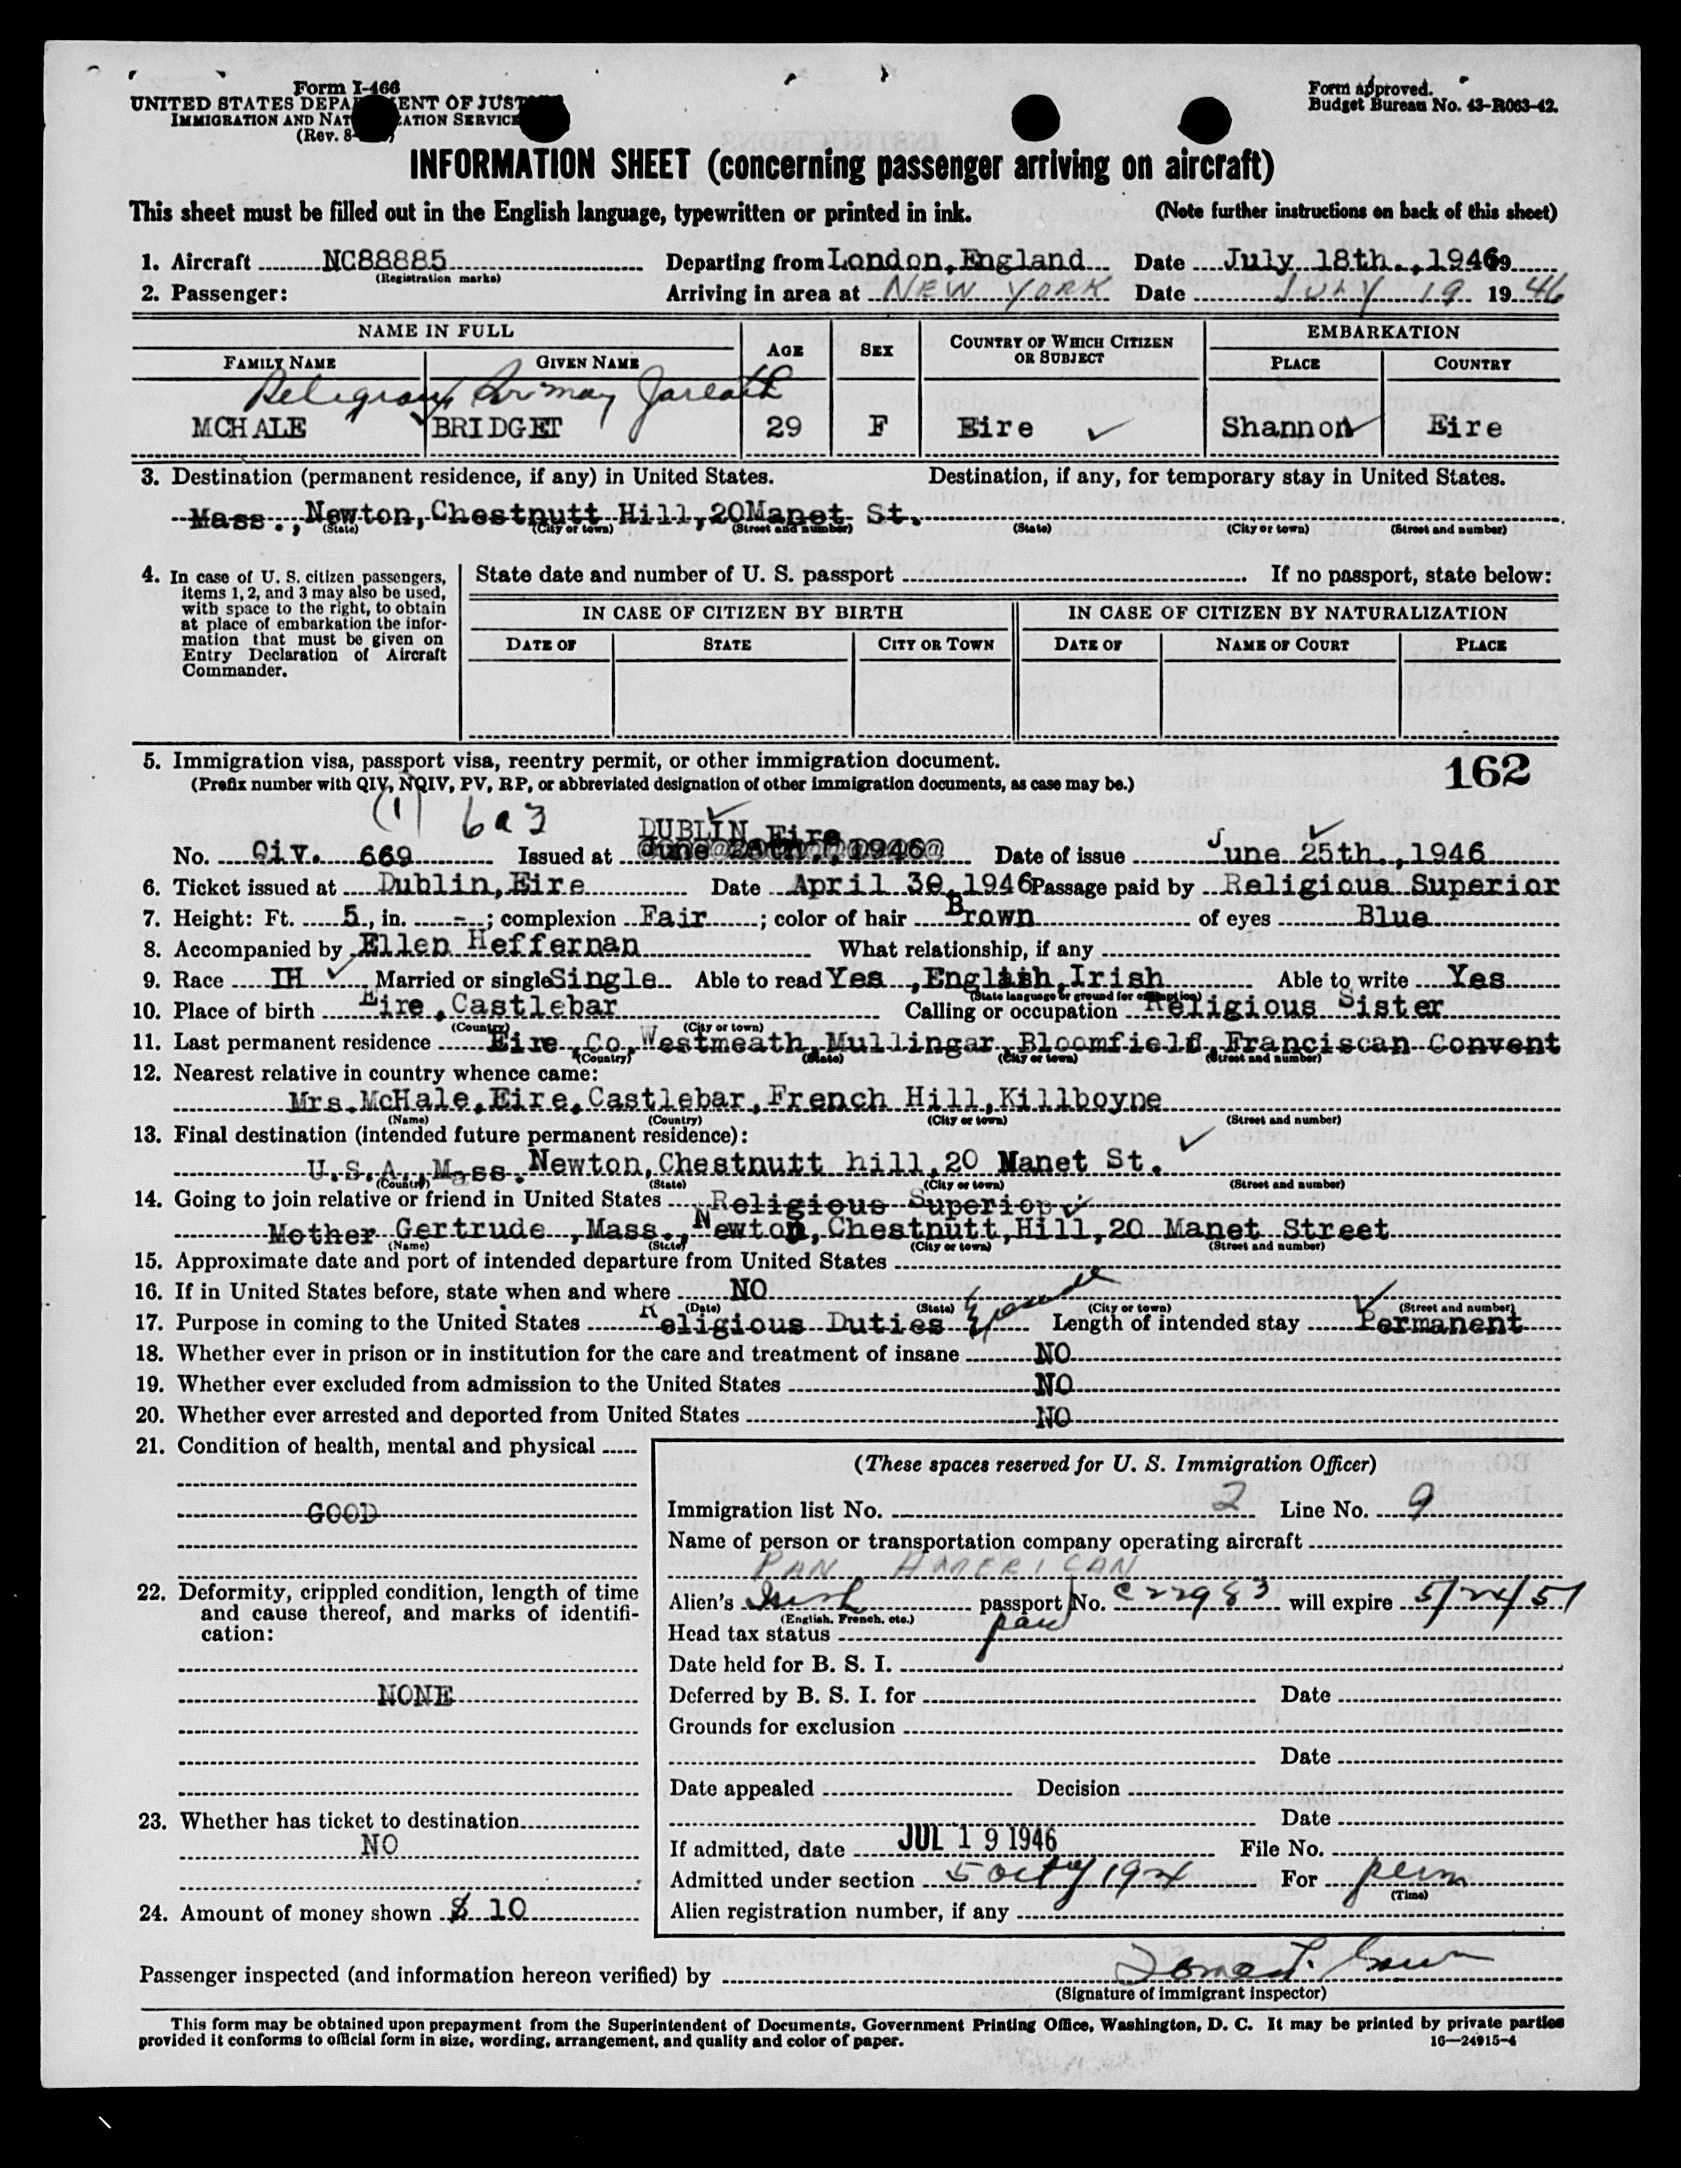 Form I-466
UNITED STATES DEPARTMENT OF JUSTICE
IMMIGRATION AND NATURALIZATION SERVICE
(Rev. 8-
Form approved.
Budget Bureau No. 43-R063-42.
INFORMATION SHEET (concerning passenger arriving on aircraft)
This sheet must be filled out in the English language, typewritten or printed in ink. (Note further instructions on back of this sheet)
1. Aircraft NC88885 Departing from London, England Date July 18th.,1946 19
(Registration marks)
2. Passenger: Arriving in area at NEW YORK Date JULY 19 1946
NAME IN FULL AGE SEX COUNTRY OF WHICH CITIZEN OR SUBJECT EMBARKATION
FAMILY NAME GIVEN NAME PLACE COUNTRY
Religious Jarlath
MCHALE BRIDGET 29 F Eire Shannon Eire
3. Destination (permanent residence, if any) in United States. Destination, if any, for temporary stay in United States.
Mass., Newton, Chestnutt Hill, 20 Manet St.
(State) (City or town) (Street and number) (State) (City or town) (Street and number)
4. In case of U. S. citizen passengers, items 1, 2, and 3 may also be used, with space to the right, to obtain at place of embarkation the information that must be given on Entry Declaration of Aircraft Commander.
State date and number of U. S. passport . If no passport, state below:
IN CASE OF CITIZEN BY BIRTH IN CASE OF CITIZEN BY NATURALIZATION
DATE OF STATE CITY OR TOWN DATE OF NAME OF COURT PLACE
5. Immigration visa, passport visa, reentry permit, or other immigration document. 162
(Prefix number with QIV, NQIV, PV, RP, or abbreviated designation of other immigration documents, as case may be.)
(1) 6a3
DUBLIN Eire
No. QiV. 669 Issued at June 25th., 1946 Date of issue June 25th.,1946
6. Ticket issued at Dublin, Eire Date April 30,1946 Passage paid by Religious Superior
7. Height: Ft. 5, in. -; complexion Fair; color of hair Brown of eyes Blue
8. Accompanied by Ellen Heffernan What relationship, if any
9. Race IH Married or single Single Able to read Yes ,English,Irish Able to write Yes
(State language or ground for exemption)
10. Place of birth Eire, Castlebar Calling or occupation Religious Sister
(Country) (City or town)
11. Last permanent residence Eire, Co, Westmeath, Mullingar, Bloomfield, Franciscan Convent
(Country) (State) (City or town) (Street and number)
12. Nearest relative in country whence came:
Mrs.McHale, Eire, Castlebar, French Hill, Killboyne
(Name) (Country) (City or town) (Street and number)
13. Final destination (intended future permanent residence):
U.S.A., Mass. Newton, Chestnutt hill, 20 Manet St.
(Country) (State) (City or town) (Street and number)
14. Going to join relative or friend in United States Religious Superior
Mother Gertrude ,Mass., Newton, Chestnutt, Hill, 20 Manet Street
(Name) (State) (City or town) (Street and number)
15. Approximate date and port of intended departure from United States
16. If in United States before, state when and where NO
(Date) (State) (City or town) (Street and number)
17. Purpose in coming to the United States Religious Duties Length of intended stay Permanent
18. Whether ever in prison or in institution for the care and treatment of insane NO
19. Whether ever excluded from admission to the United States NO
20. Whether ever arrested and deported from United States NO
21. Condition of health, mental and physical
GOOD
22. Deformity, crippled condition, length of time and cause thereof, and marks of identification:
NONE
23. Whether has ticket to destination
NO
24. Amount of money shown $ 10
(These spaces reserved for U. S. Immigration Officer)
Immigration list No. 2 Line No. 9
Name of person or transportation company operating aircraft
PAN AMERICAN
Alien's Irish passport No. C22983 will expire 5/24/51
(English, French, etc.)
Head tax status paid
Date held for B. S. I.
Deferred by B. S. I. for Date
Grounds for exclusion
Date
Date appealed Decision
Date
If admitted, date JUL 19 1946 File No.
Admitted under section 5 1924 For perm
(Time)
Alien registration number, if any
Passenger inspected (and information hereon verified) by
(Signature of immigrant inspector)
This form may be obtained upon prepayment from the Superintendent of Documents, Government Printing Office, Washington, D. C. It may be printed by private parties
provided it conforms to official form in size, wording, arrangement, and quality and color of paper. 16—24915-4